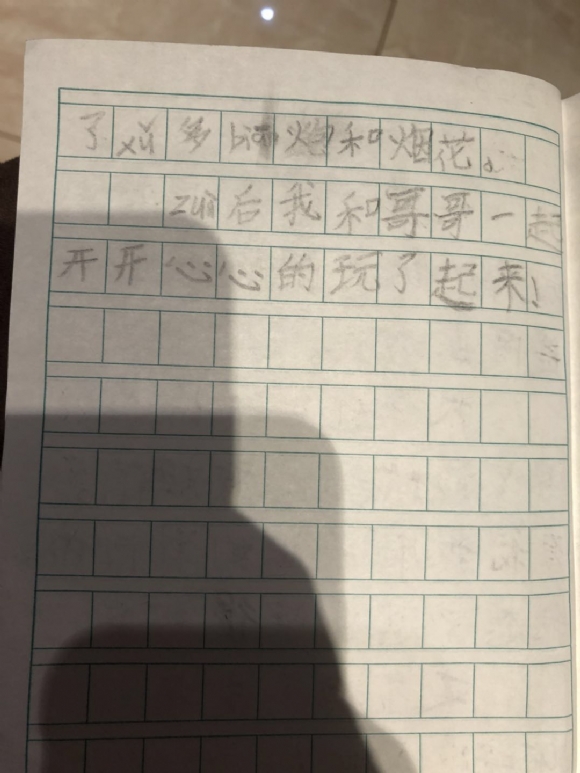 了xǔ多biān火包和烟花。
zuì后我和哥哥一起
开开心心的玩了起来!